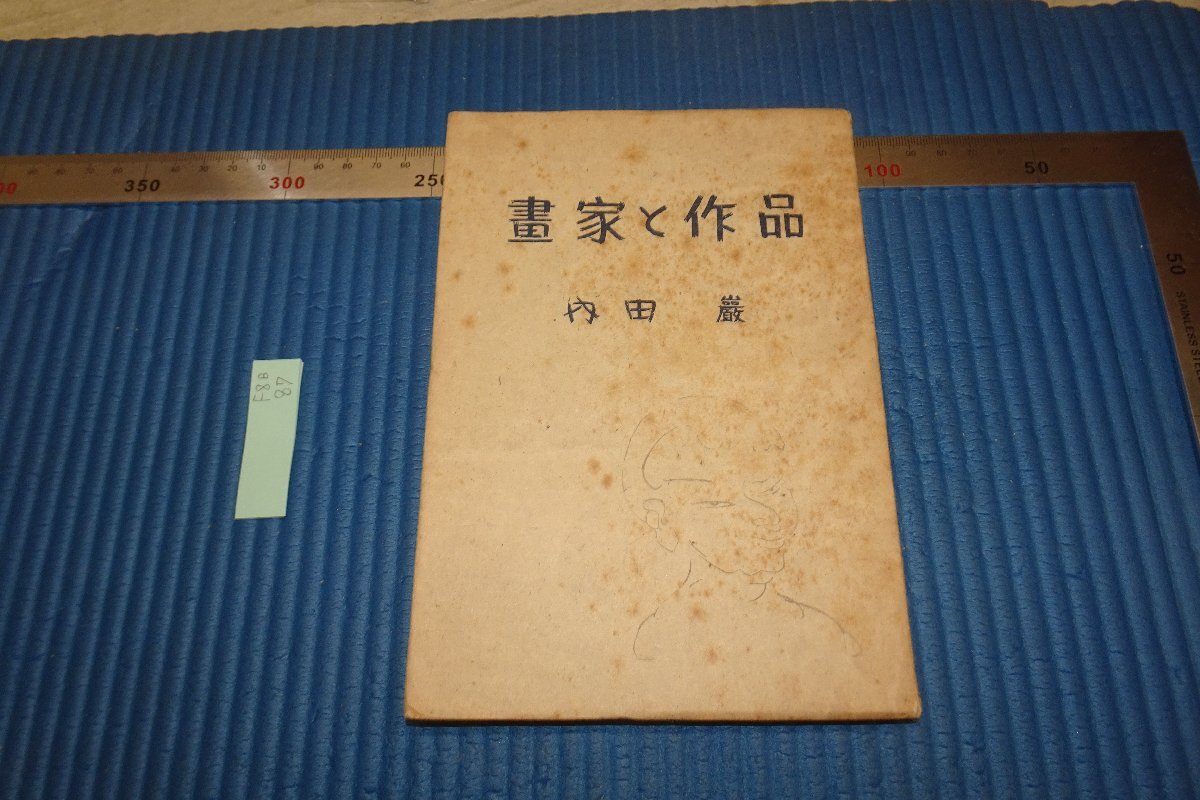 00 350 300 250 100 50
畫家と作品
内田 巖
50
STAINLESS STEEL
F8B
87